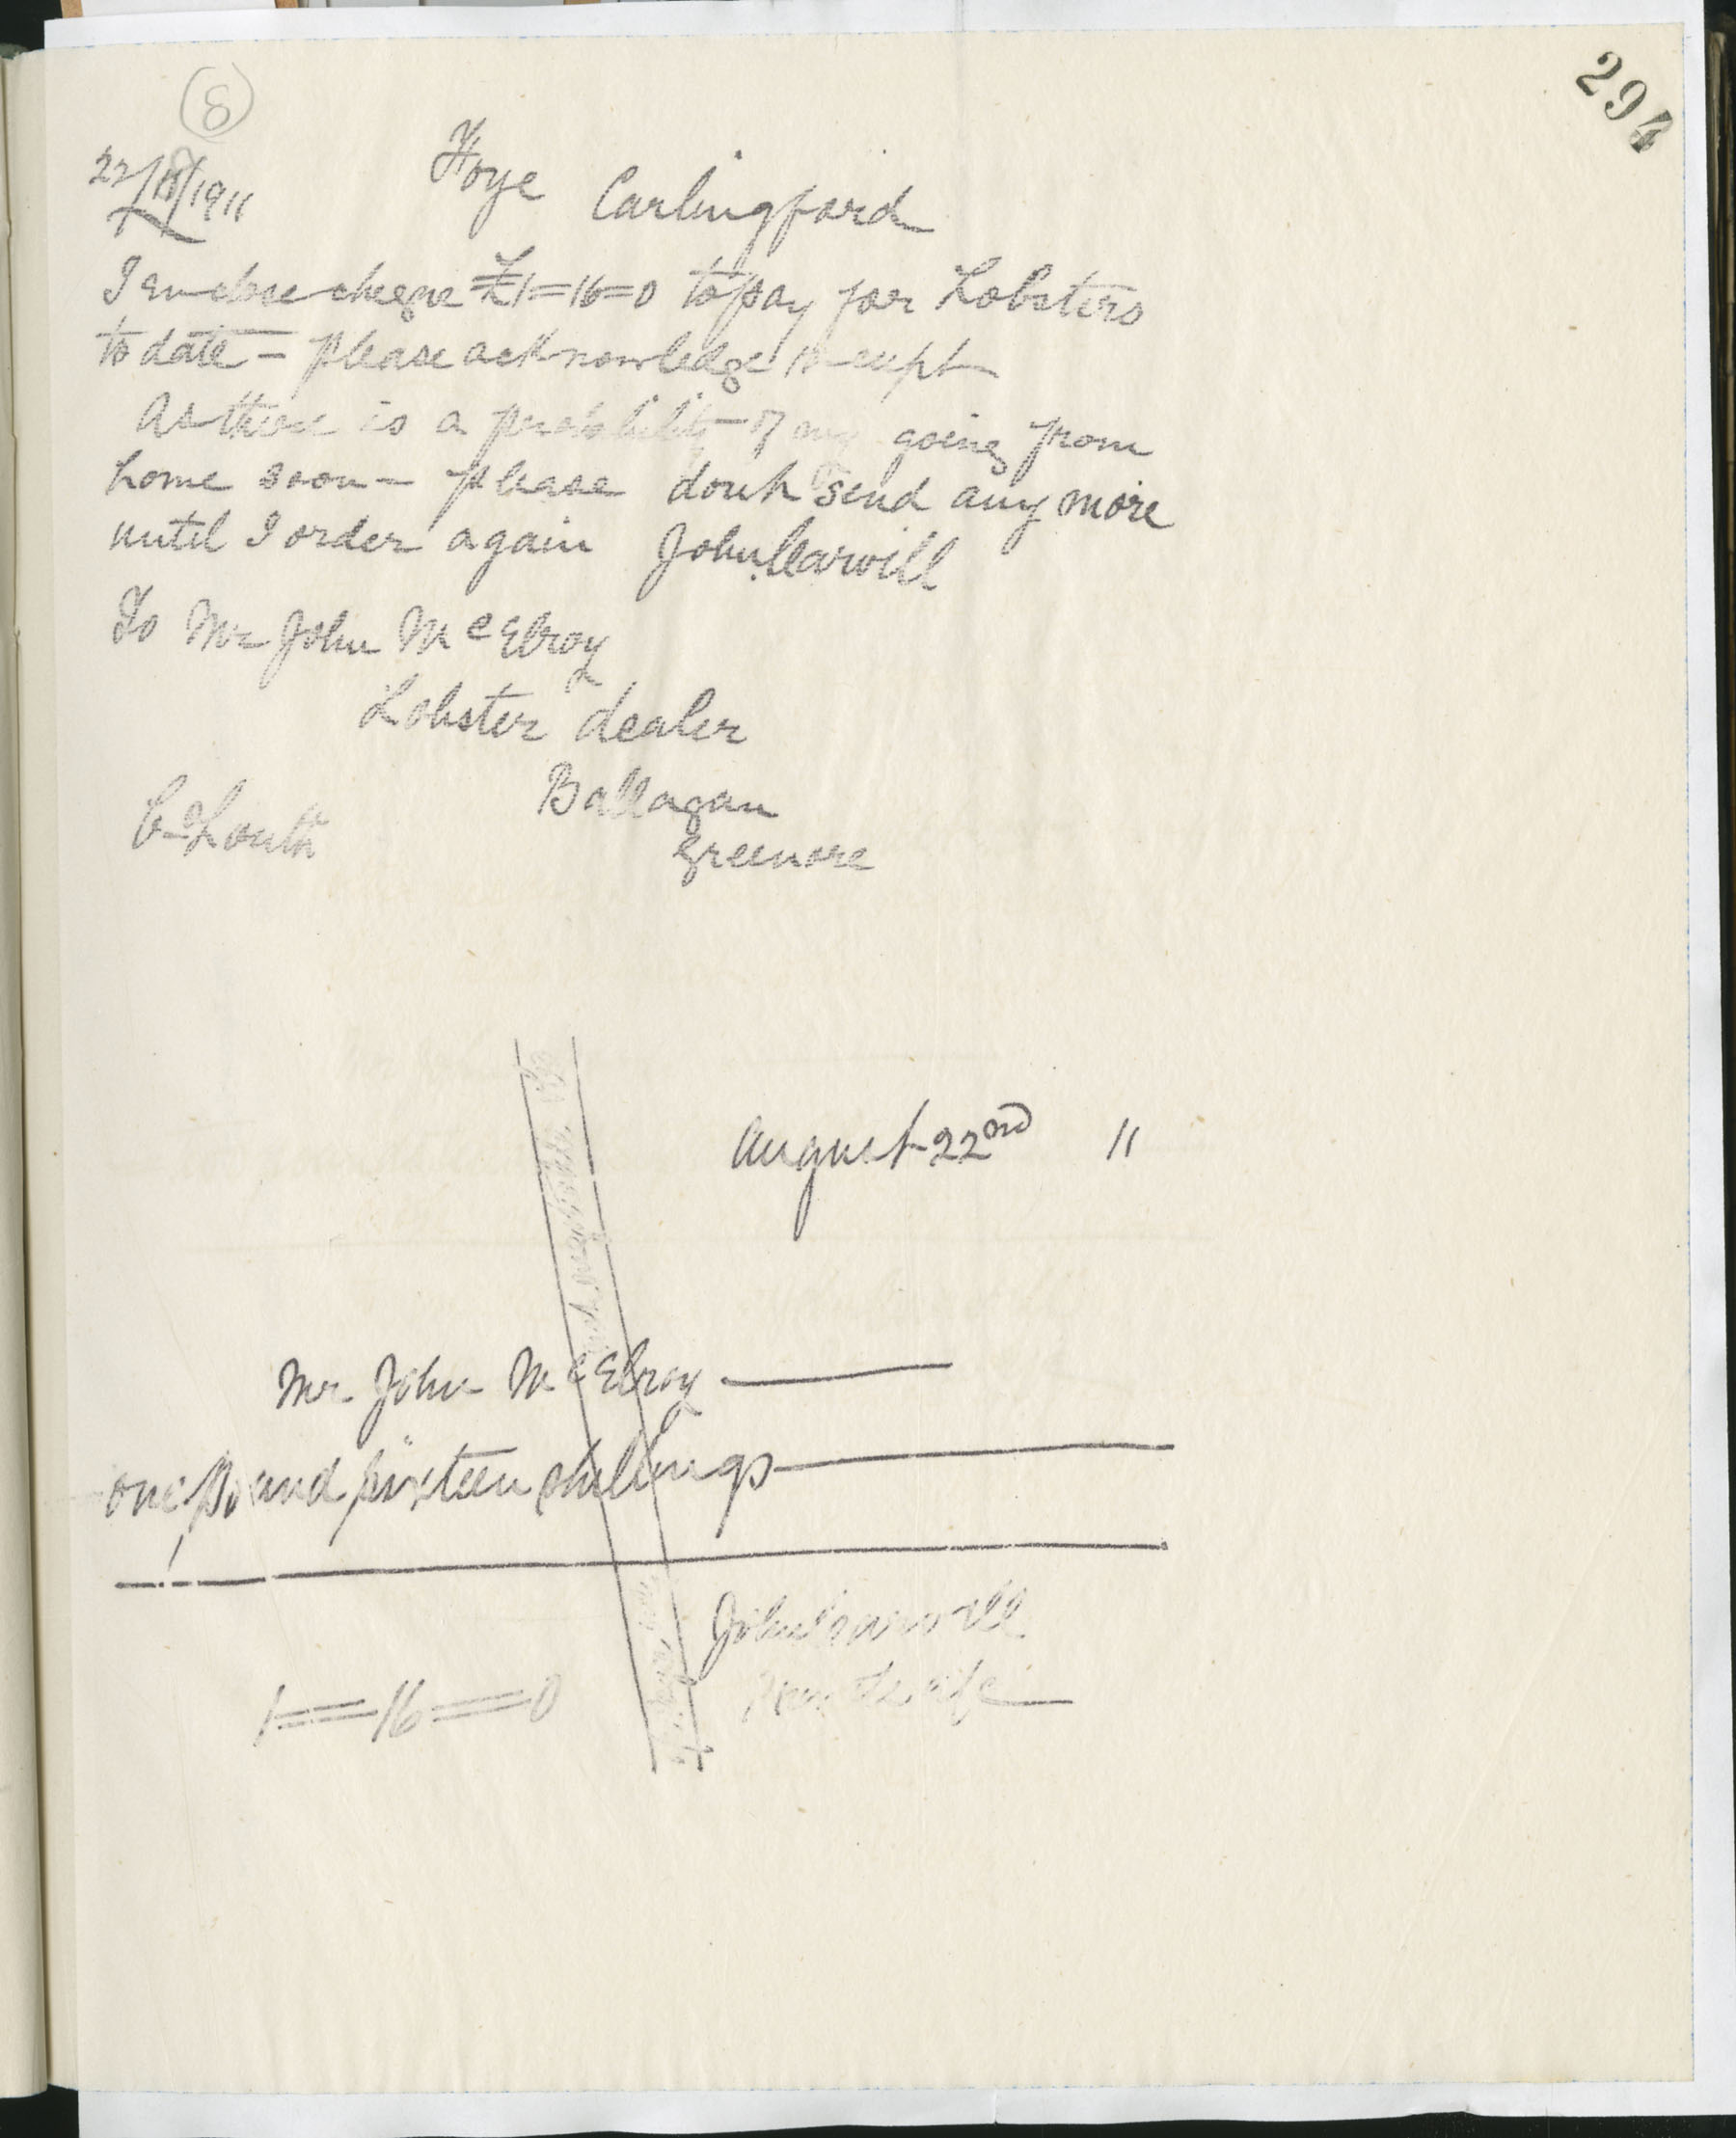 294
8
22/8/1911 Hoye Carlingford
I enclose cheque £1=16=0 to pay for Lobsters
to date – please acknowledge receipt
As there is a probability of my going from
home soon – please dont send any more
until I order again John Carvill
To Mr John McElroy
Lobster dealer
Ballagan
Co Louth
Greenore
August 22nd 11
Mr John McElroy
one pound sixteen shillings
John Carvill
1=16=0